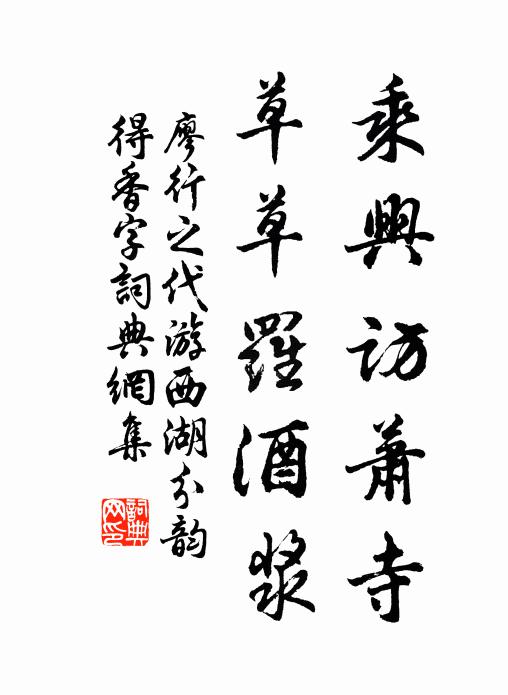 乘興訪蕭寺
草草羅酒漿
廖行之代游西湖分韵
得香字詞典網集
詞典
网印